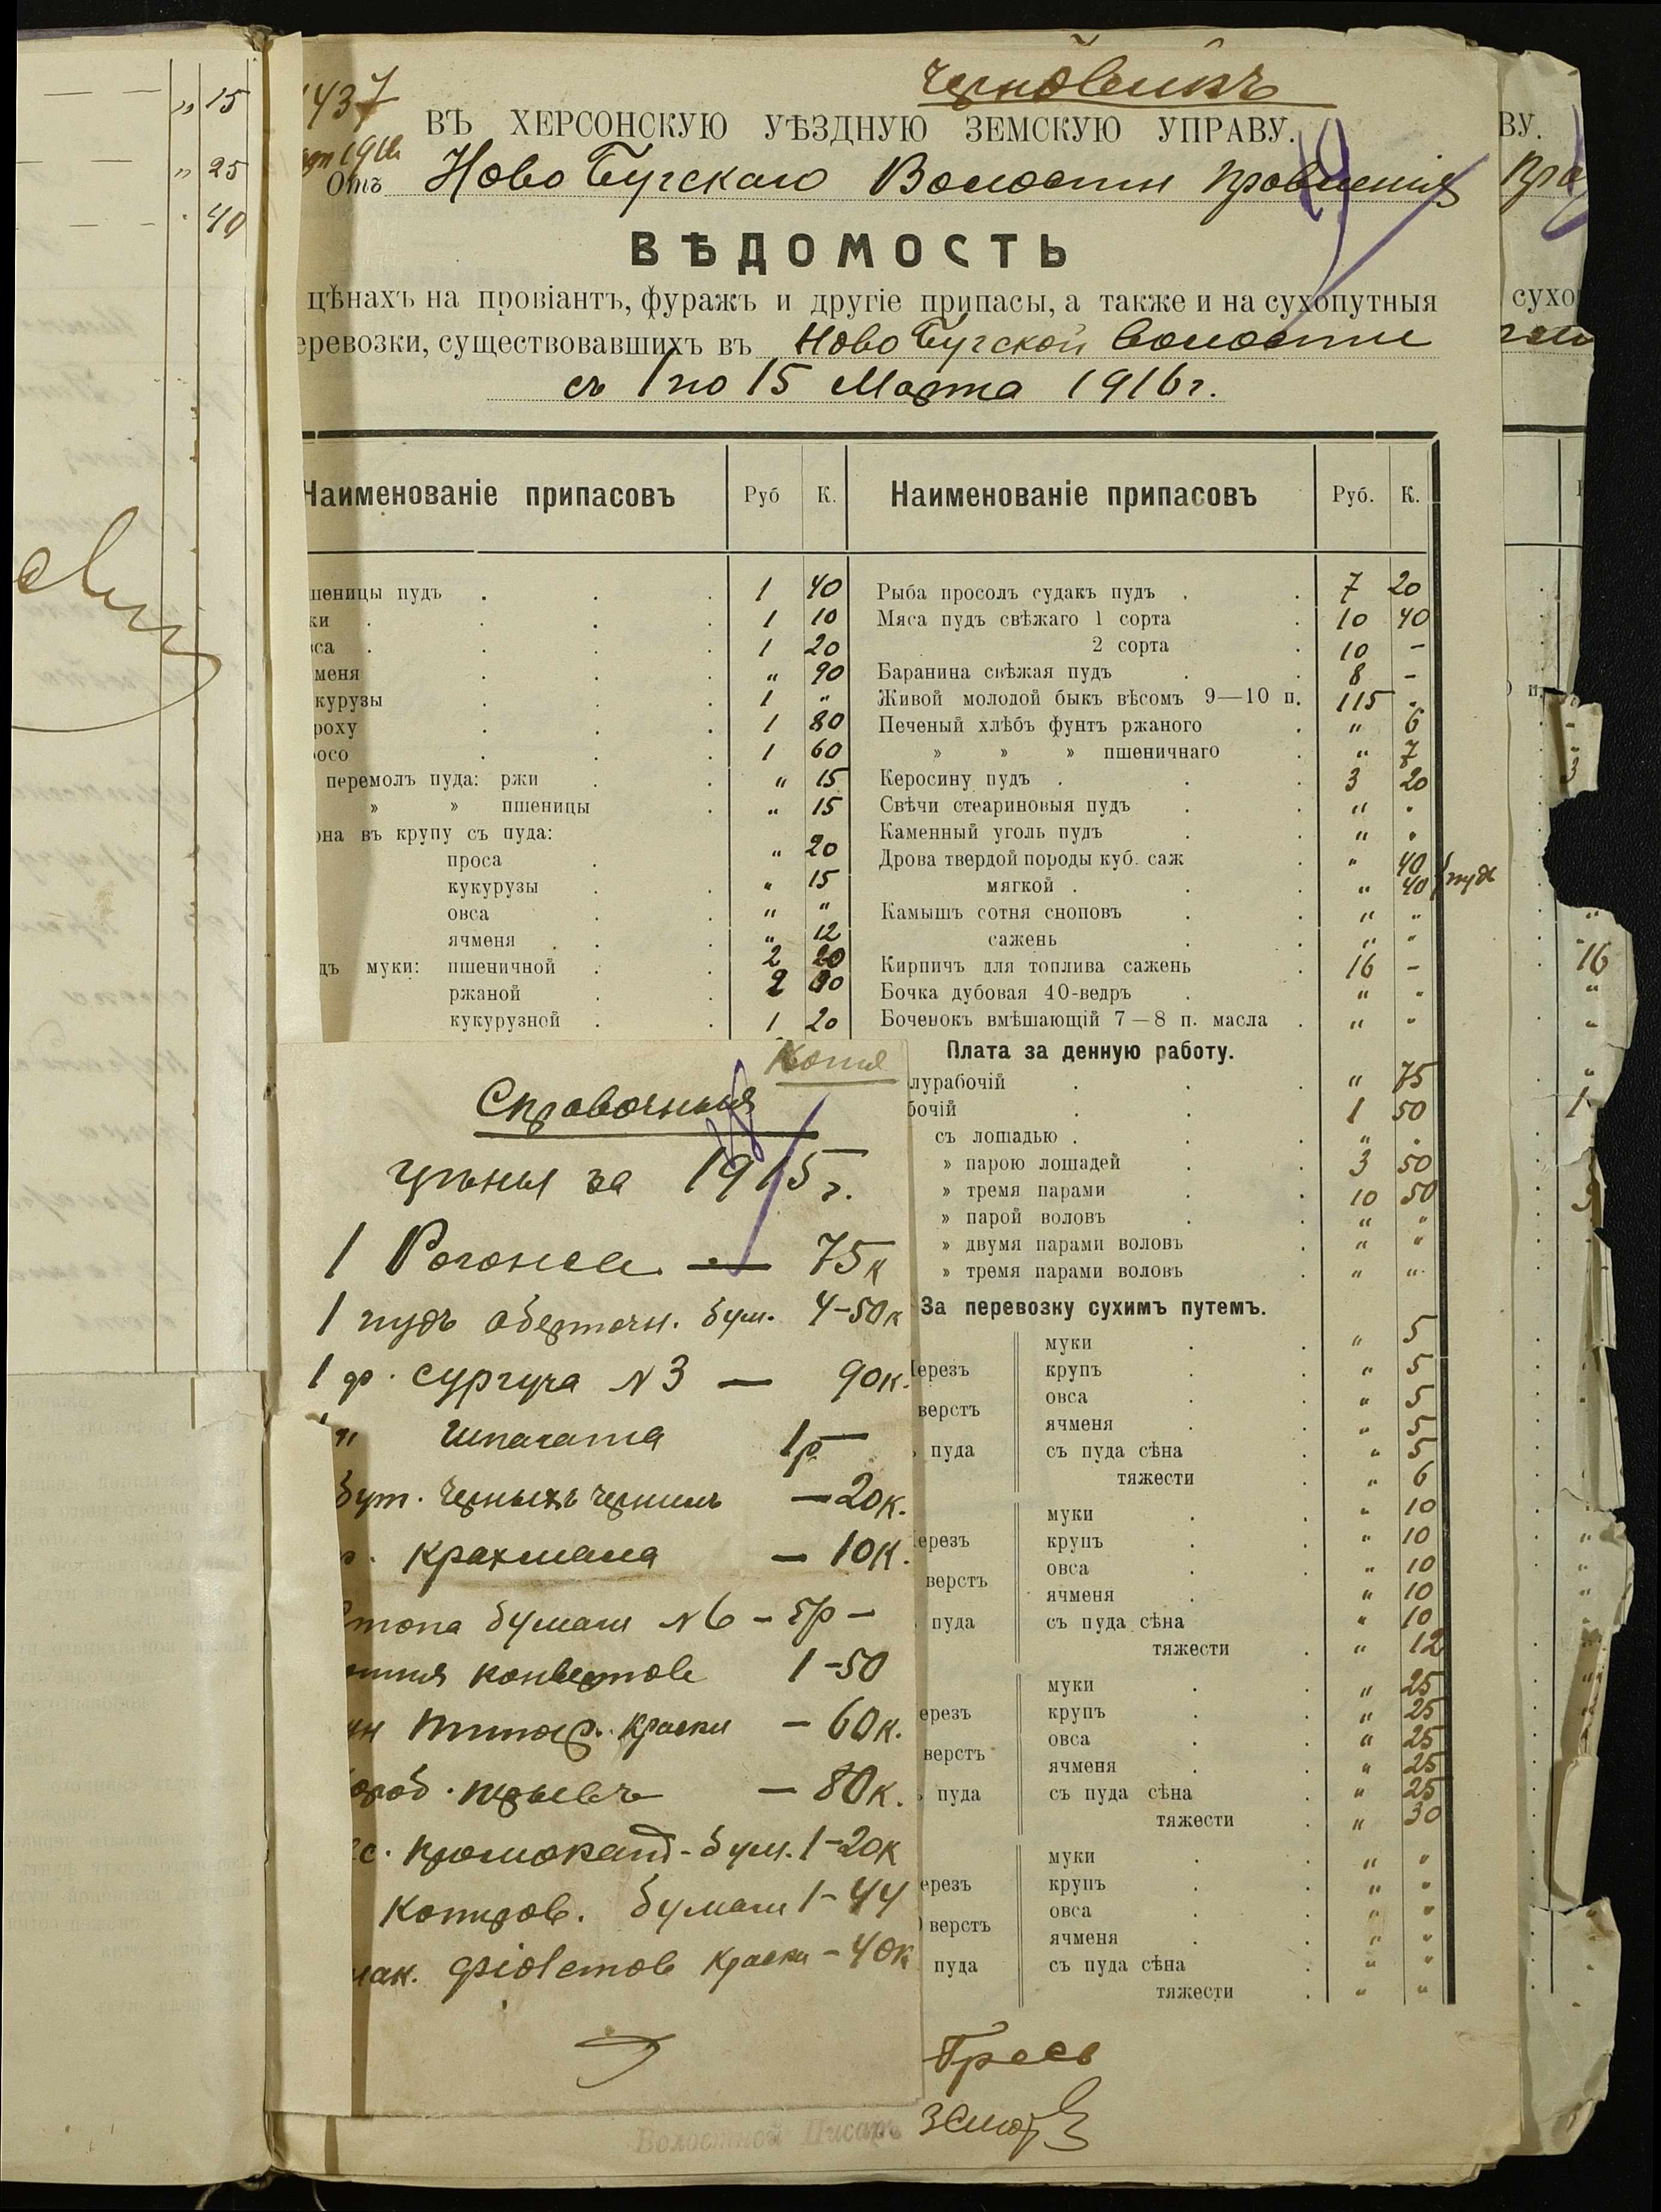 " 15
" 25
. 40
1437
Черновикъ
ВЪ ХЕРСОНСКУЮ УѢЗДНУЮ ЗЕМСКУЮ УПРАВУ.
Отъ Ново Бугскаго Волостн правленія
ВѢДОМОСТЬ
цѣнахъ на провіантъ, фуражъ и другіе припасы, а также и на сухопутныя
еревозки, существовавшихъ въ Ново Бугской Волости
съ 1 по 15 Марта 1916 г.
Наименованіе припасовъ Руб К. Наименованіе припасовъ Руб. К.
шеницы пудъ 1 40
ки 1 10
вса 1 20
меня " 90
курузы 1 "
роху 1 80
росо 1 60
перемолъ пуда: ржи " 15
» » пшеницы " 15
она въ крупу съ пуда:
проса " 20
кукурузы " 15
овса " "
ячменя " 12
дъ муки: пшеничной 2 20
ржаной 2
кукурузной 1 20
Рыба просолъ судакъ пудъ 7 20
Мяса пудъ свѣжаго 1 сорта 10 40
2 сорта 10 -
Баранина свѣжая пудъ 8 -
Живой молодой быкъ вѣсомъ 9—10 п. 115 .
Печеный хлѣбъ фунтъ ржаного " 6
» » » пшеничнаго " 7
Керосину пудъ 3 20
Свѣчи стеариновыя пудъ " .
Каменный уголь пудъ " .
Дрова твердой породы куб. саж " 40
мягкой " 40 пудъ
Камышъ сотня сноповъ " "
сажень " "
Кирпичъ для топлива сажень 16 -
Бочка дубовая 40-ведръ " "
Боченокъ вмѣшающій 7—8 п. масла " "
Плата за денную работу.
лурабочій " 75
бочій 1 50
съ лошадью " .
» парою лошадей 3 50
» тремя парами 10 50
» парой воловъ " "
» двумя парами воловъ " "
» тремя парами воловъ " "
За перевозку сухимъ путемъ.
муки " 5
ерезъ крупъ " 5
верстъ овса " 5
ячменя " 5
пуда съ пуда сѣна " 5
тяжести " 6
муки " 10
ерезъ крупъ " 10
верстъ овса " 10
ячменя " 10
пуда съ пуда сѣна " 10
тяжести " 12
муки " 25
ерезъ крупъ " 25
верстъ овса " 25
ячменя " 25
пуда съ пуда сѣна " 25
тяжести " 30
муки " "
ерезъ крупъ " "
верстъ овса " "
ячменя " "
пуда съ пуда сѣна " "
тяжести " "
Копія
Справочныя
цѣны за 1915 г.
1 Рогожа — 75 к
1 пудъ оберточн. бум. 4-50 к
1 ф. сургуча № 3 — 90 к.
" Шпагата 1 р —
бут. Черныхъ чернилъ — 20 к.
крахмала — 10 к.
стопа бумаги № 6 - 5 р -
отня конвертов 1-50
Типогр. краски - 60 к.
короб. перьевъ — 80 к.
с. промокат. бум. 1-20 к
Копиров. бумаги 1-44
пак. фіолетов краски - 40 к
Волостной Писарь
ВУ.
сухо
16